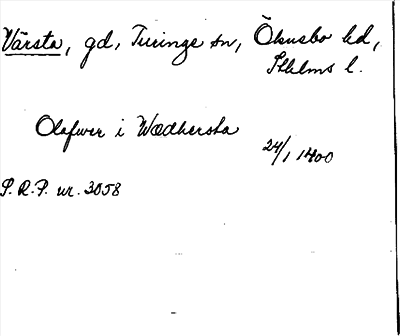 Värsta, gd, Turinge sn, Öknebo hd,
Sthlms l.
Olafwer i Wædhersta
24/1 1400
S.R.P. nr. 3058